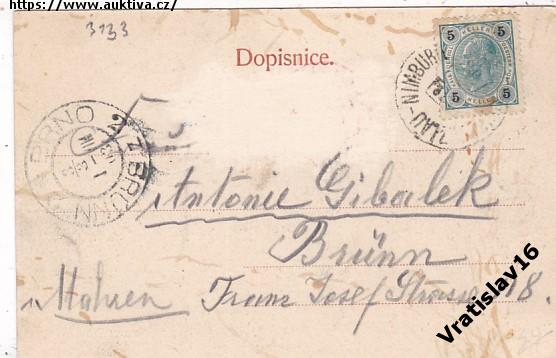 https://www.auktiva.cz/
3133
Dopisnice.
5 HELLER 5
5 HELLER 5
LAU-NIMBUR
BRNO
2 BRÜNN 2
Antonie Gibalek
Brünn
Mahren Franz Josef Strasse 18.
Vratislav16